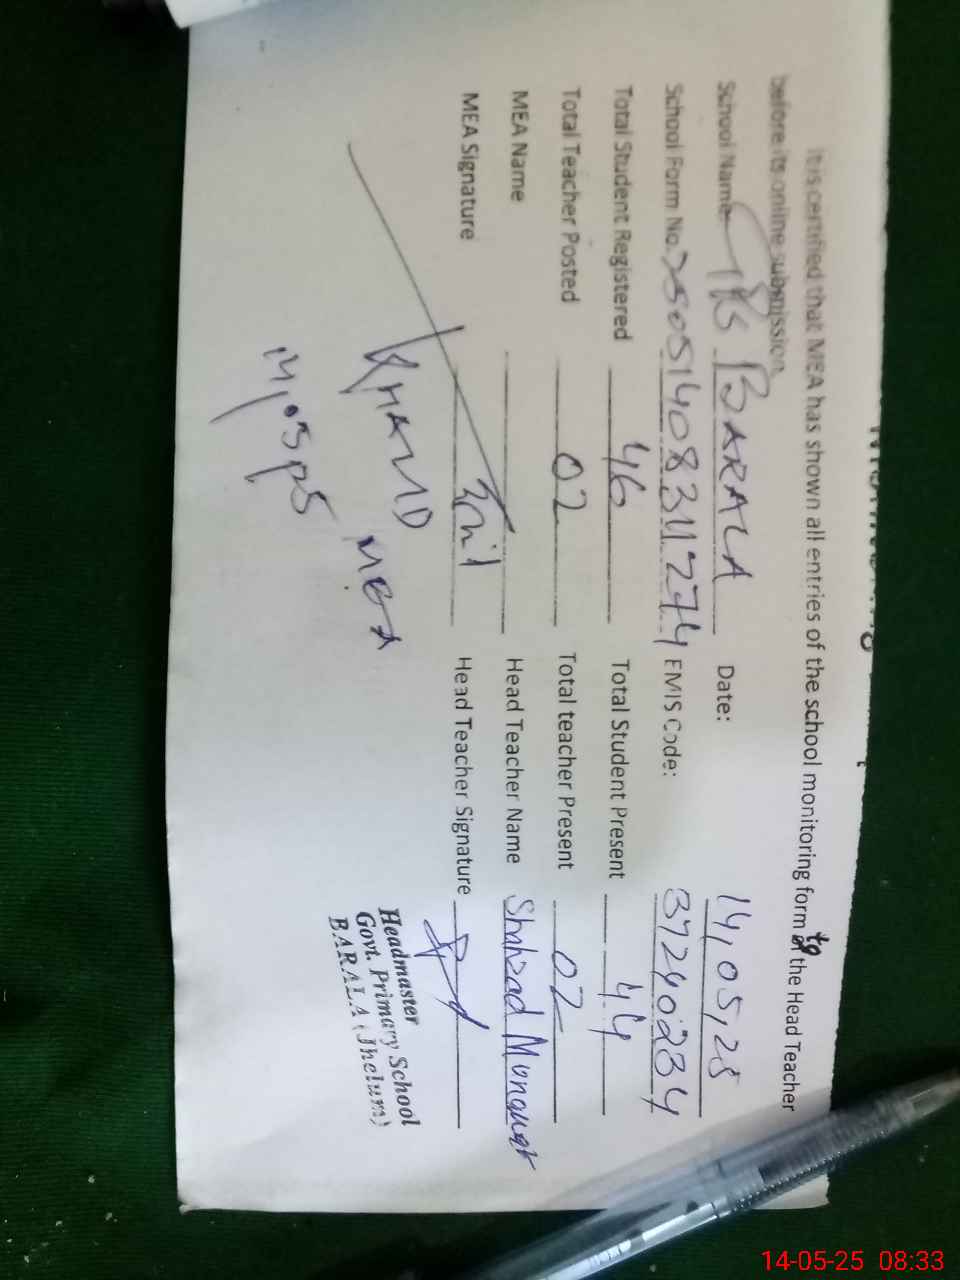 It is certified that MEA has shown all entries of the school monitoring form to the Head Teacher
before its online submission.
School Name GPS BARALA Date: 14,05,25
School Form No. 250514083112274 EMIS Code: 37240234
Total Student Registered 46 Total Student Present 44
Total Teacher Posted 02 Total teacher Present 02
MEA Name Head Teacher Name Shahzad Munawar
MEA Signature Head Teacher Signature
MEA
Headmaster
Govt. Primary School
BARALA (Jhelum)
14-05-25 08:33